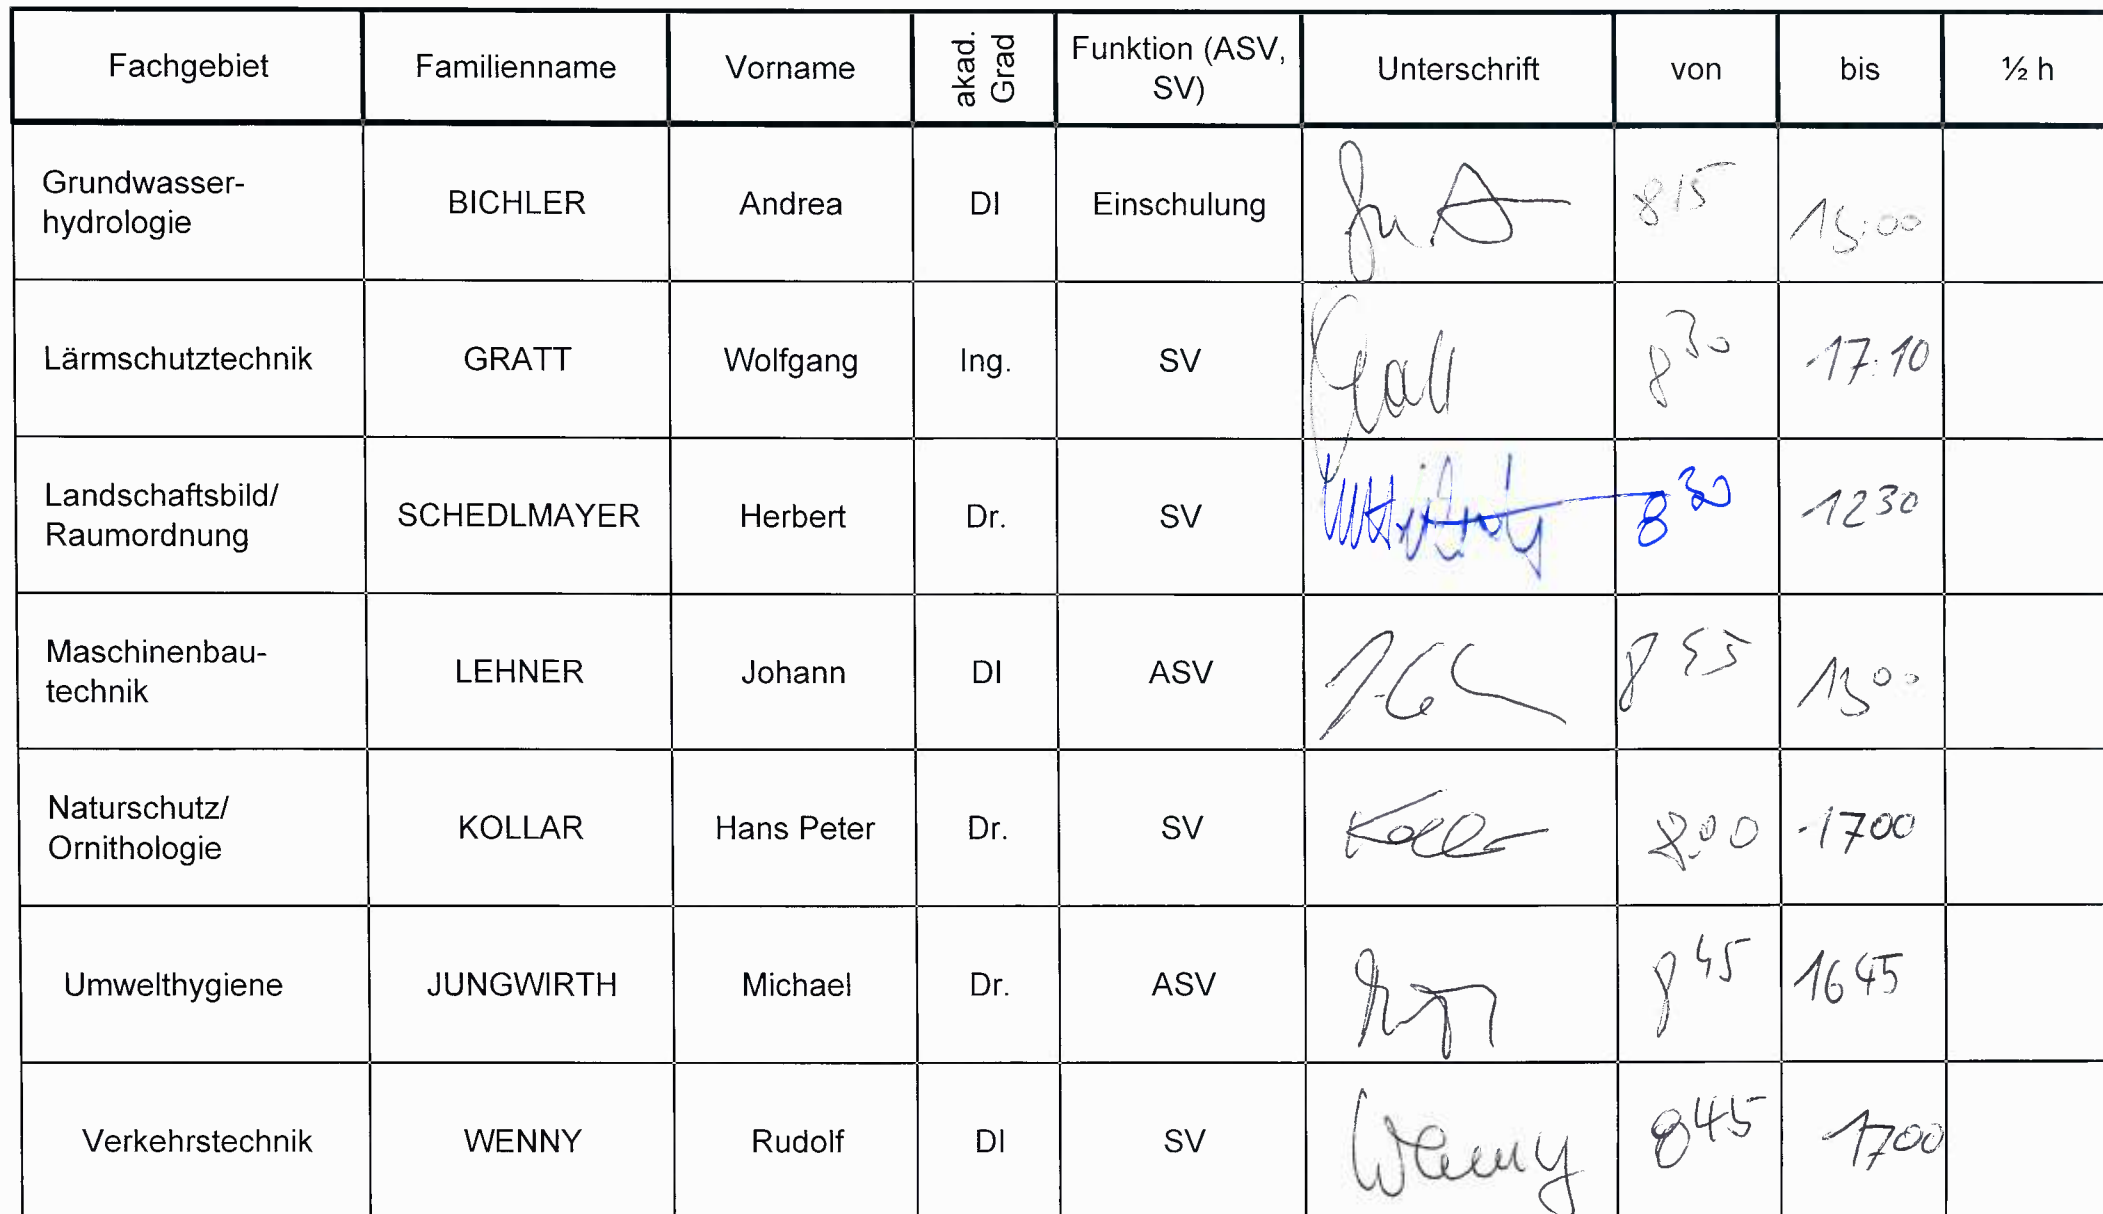 Fachgebiet Familienname Vorname akad. Grad Funktion (ASV, SV) Unterschrift von bis ½ h
Grundwasser-
hydrologie BICHLER Andrea DI Einschulung 8 15
Lärmschutztechnik GRATT Wolfgang Ing. SV Gratt 8 30 17:10
Landschaftsbild/
Raumordnung SCHEDLMAYER Herbert Dr. SV 8 30 12 30
Maschinenbau-
technik LEHNER Johann DI ASV 8
Naturschutz/
Ornithologie KOLLAR Hans Peter Dr. SV Kollar 8.00 1700
Umwelthygiene JUNGWIRTH Michael Dr. ASV 8 45 16 45
Verkehrstechnik WENNY Rudolf DI SV Wenny 8 45 1700